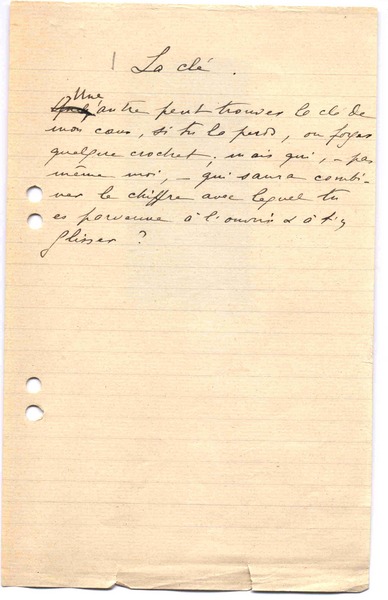 La clé.
Une autre peut trouver la clé de
mon cœur, si tu la perds, ou forger
quelque crochet; mais qui, – pas
même moi, – qui saura combi-
ner le chiffre avec lequel tu
es parvenue à l'ouvrir & à t'y
glisser ?